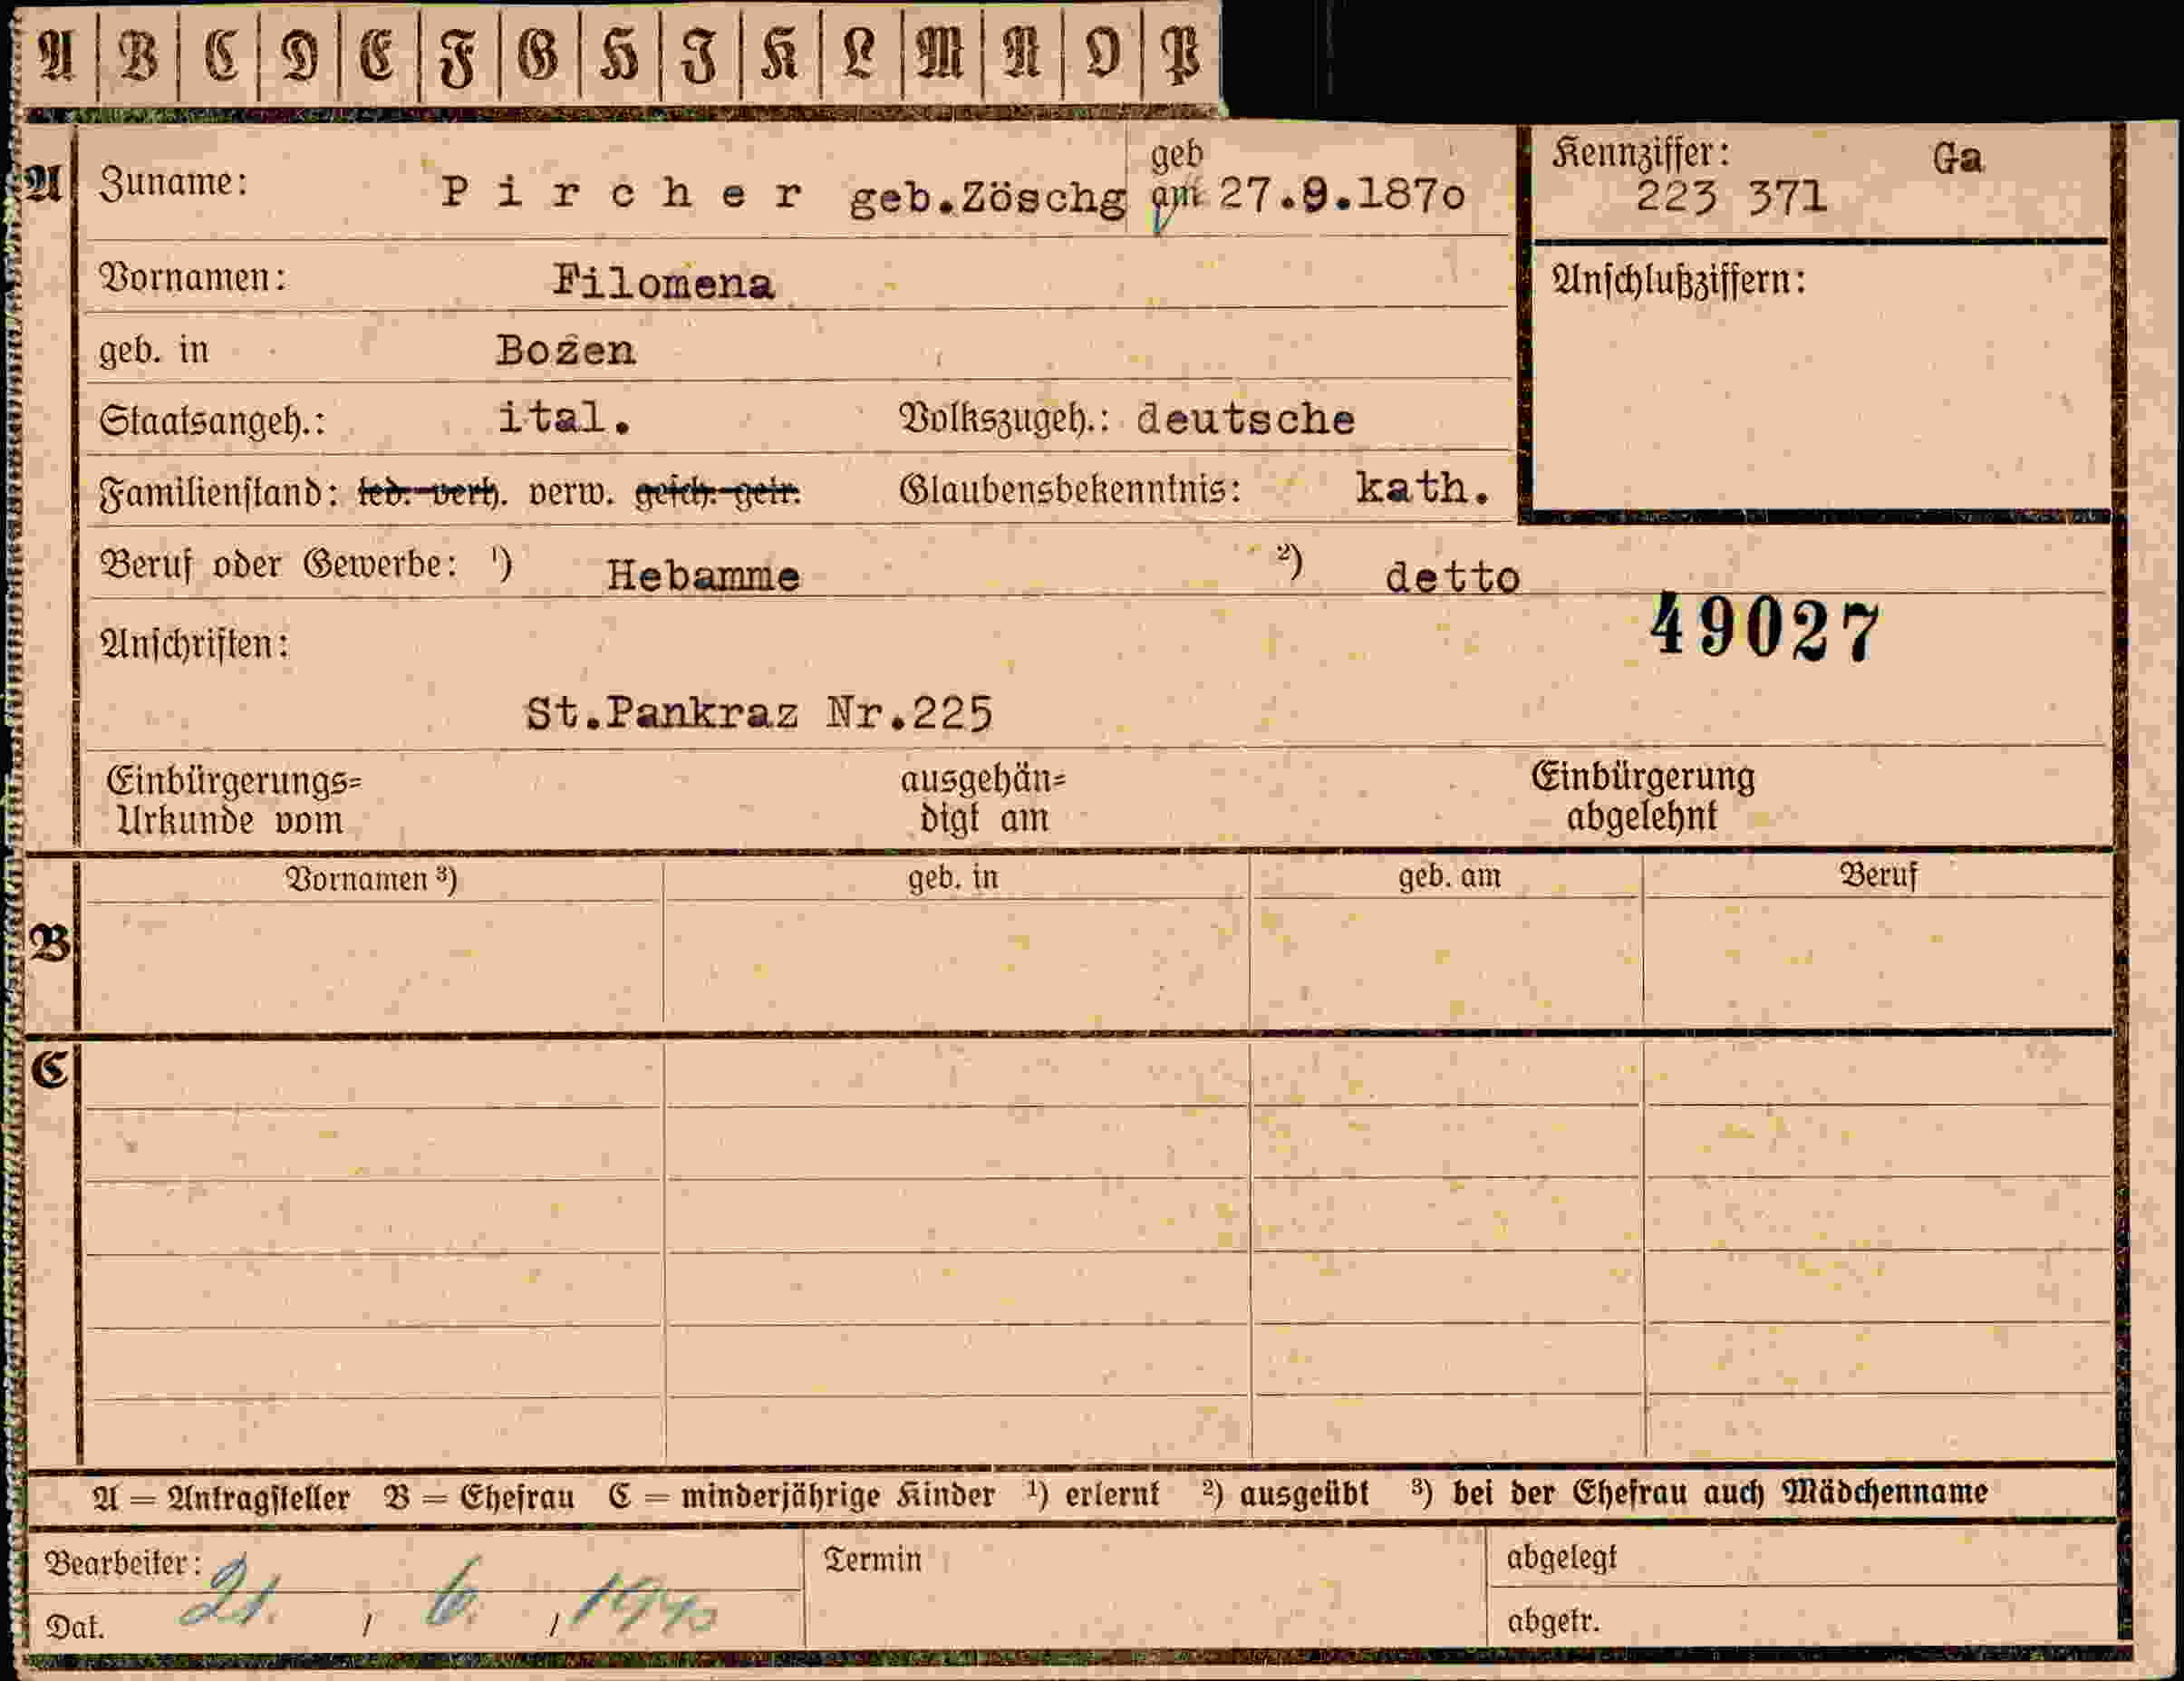 A B C D E F G H I K L M N O P
A Zuname: Pircher geb.Zöschg geb am 27.9.1870
Kennziffer: Ga
223 371
Vornamen: Filomena
Anschlußziffern:
geb. in Bozen
Staatsangeh.: ital. Volkszugeh.: deutsche
Familienstand: led. verh. verw. gesch. getr. Glaubensbekenntnis: kath.
Beruf oder Gewerbe: ¹) Hebamme ²) detto
49027
Anschriften:
St.Pankraz Nr.225
Einbürgerungs= ausgehän= Einbürgerung
Urkunde vom digt am abgelehnt
Vornamen ³) geb. in geb. am Beruf
B
C
A = Antragsteller B = Ehefrau C = minderjährige Kinder ¹) erlernt ²) ausgeübt ³) bei der Ehefrau auch Mädchenname
Bearbeiter: Termin abgelegt
Dat. 21. / 6. / 1940 abgetr.